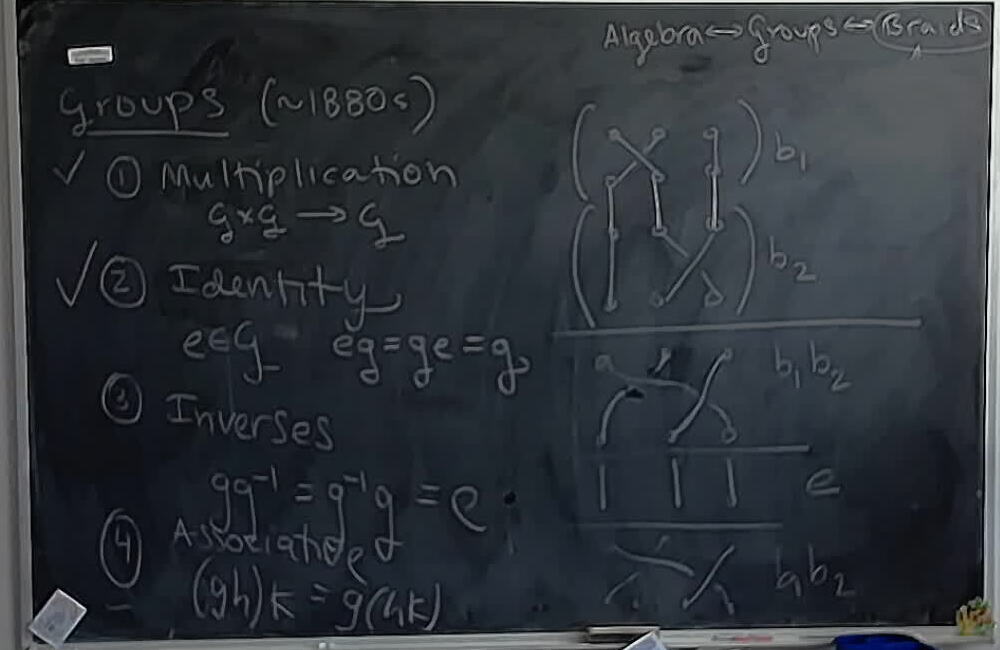 Algebra ↔ Groups ↔ Braids
Groups (~1880s)
✓ ① Multiplication
G×G → G
✓ ② Identity
e∈G eg=ge=g
③ Inverses
gg⁻¹ = g⁻¹g = e
④ Associative
(gh)k = g(hk)
b₁
b₂
b₁b₂
e
b₁b₂